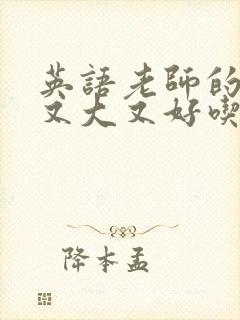 英語老師的
又大又好喫
降本孟